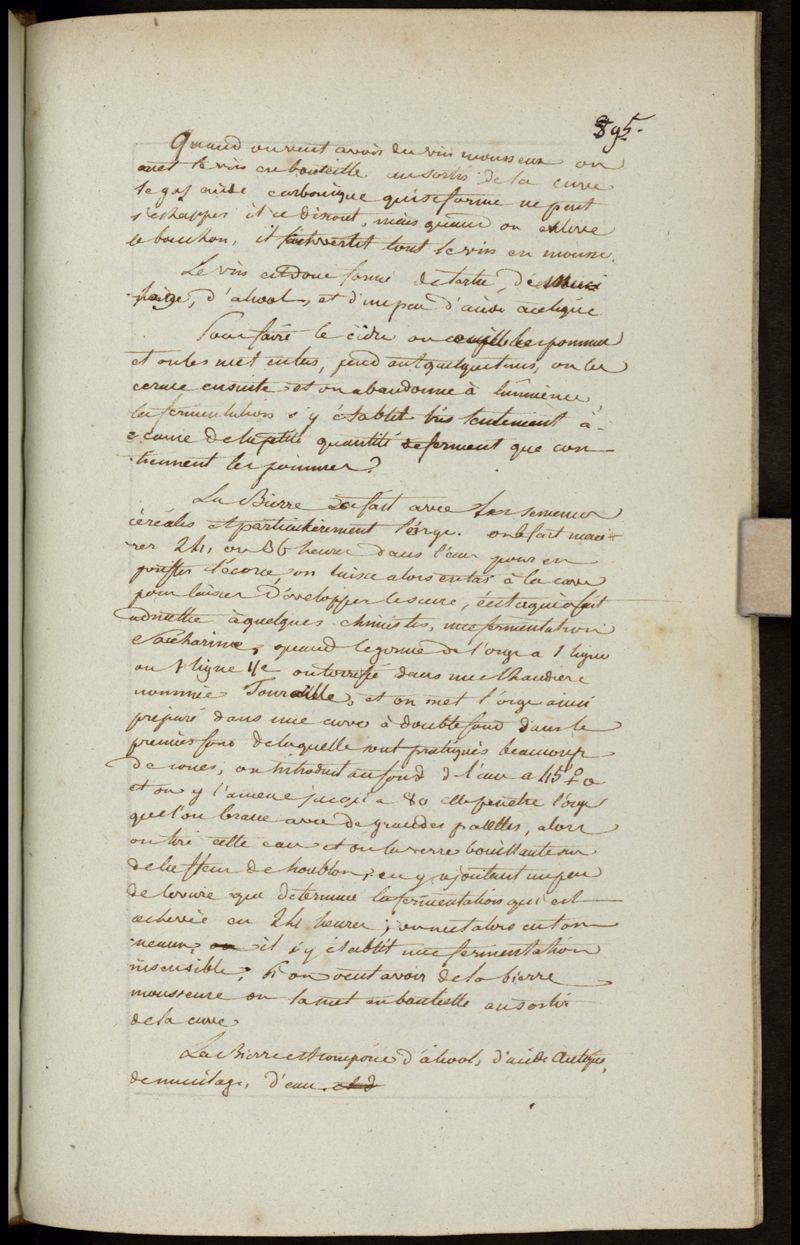 895.
Quand on veut avoir du vin mousseux on
met le vin en bouteille au sortir de la cuve
le gaz acide carbonique qui se forme ne peut
s'echapper il se dissout, mais quand on enleve
le bouchon, il convertit tout le vin en mousse.
Le vin est donc formé de tartre, de muci
lage, d'alcool, et d'un peu d'acide acetique
Pour faire le cidre on cueille les pommes
et on les met en tas, pendant quelque tems, on les
ecrase ensuite et on abandonne à lui même,
la fermentation s'y établit très lentement à
cause de la petite quantité de ferment que con
tiennent les pommes?
La Bierre se fait avec les semences
céréales et particulièrement l'orge. on le fait mace
rer 24, ou 36 heures dans l'eau pour en
gonfler l'écorce, on laisse alors en tas à la cave
pour laisser développer le sucre, c'est ce qui a fait
admettre à quelques chimistes, une fermentation
Saccharine, quand le germe de l'orge a 1 ligne
ou 1 ligne 1/2 on torrefie dans une chaudiere
nommée Touraille, et on met l'orge ainsi
préparé dans une cuve à double fond dans le
premier fond de laquelle sont pratiqués beaucoup
de cones, on introduit au fond de l'eau a 45°
et on y l'amene jusqu'a 80 elle penetre l'orge
que l'on brasse avec de grandes palettes, alors
on tire cette eau et on la verse bouillante sur
de la fleur de houblon, en y ajoutant un peu
de levure qui determine la fermentation qui est
achevée en 24 heures; on met alors en ton
neaux, ou il s'y établit une fermentation
insensible; si on veut avoir de la bierre
mousseuse on la met en bouteille au sortir
de la cuve
La Bierre est composée d'alcool, d'acide acetique,
de mucilage, d'eau. et d